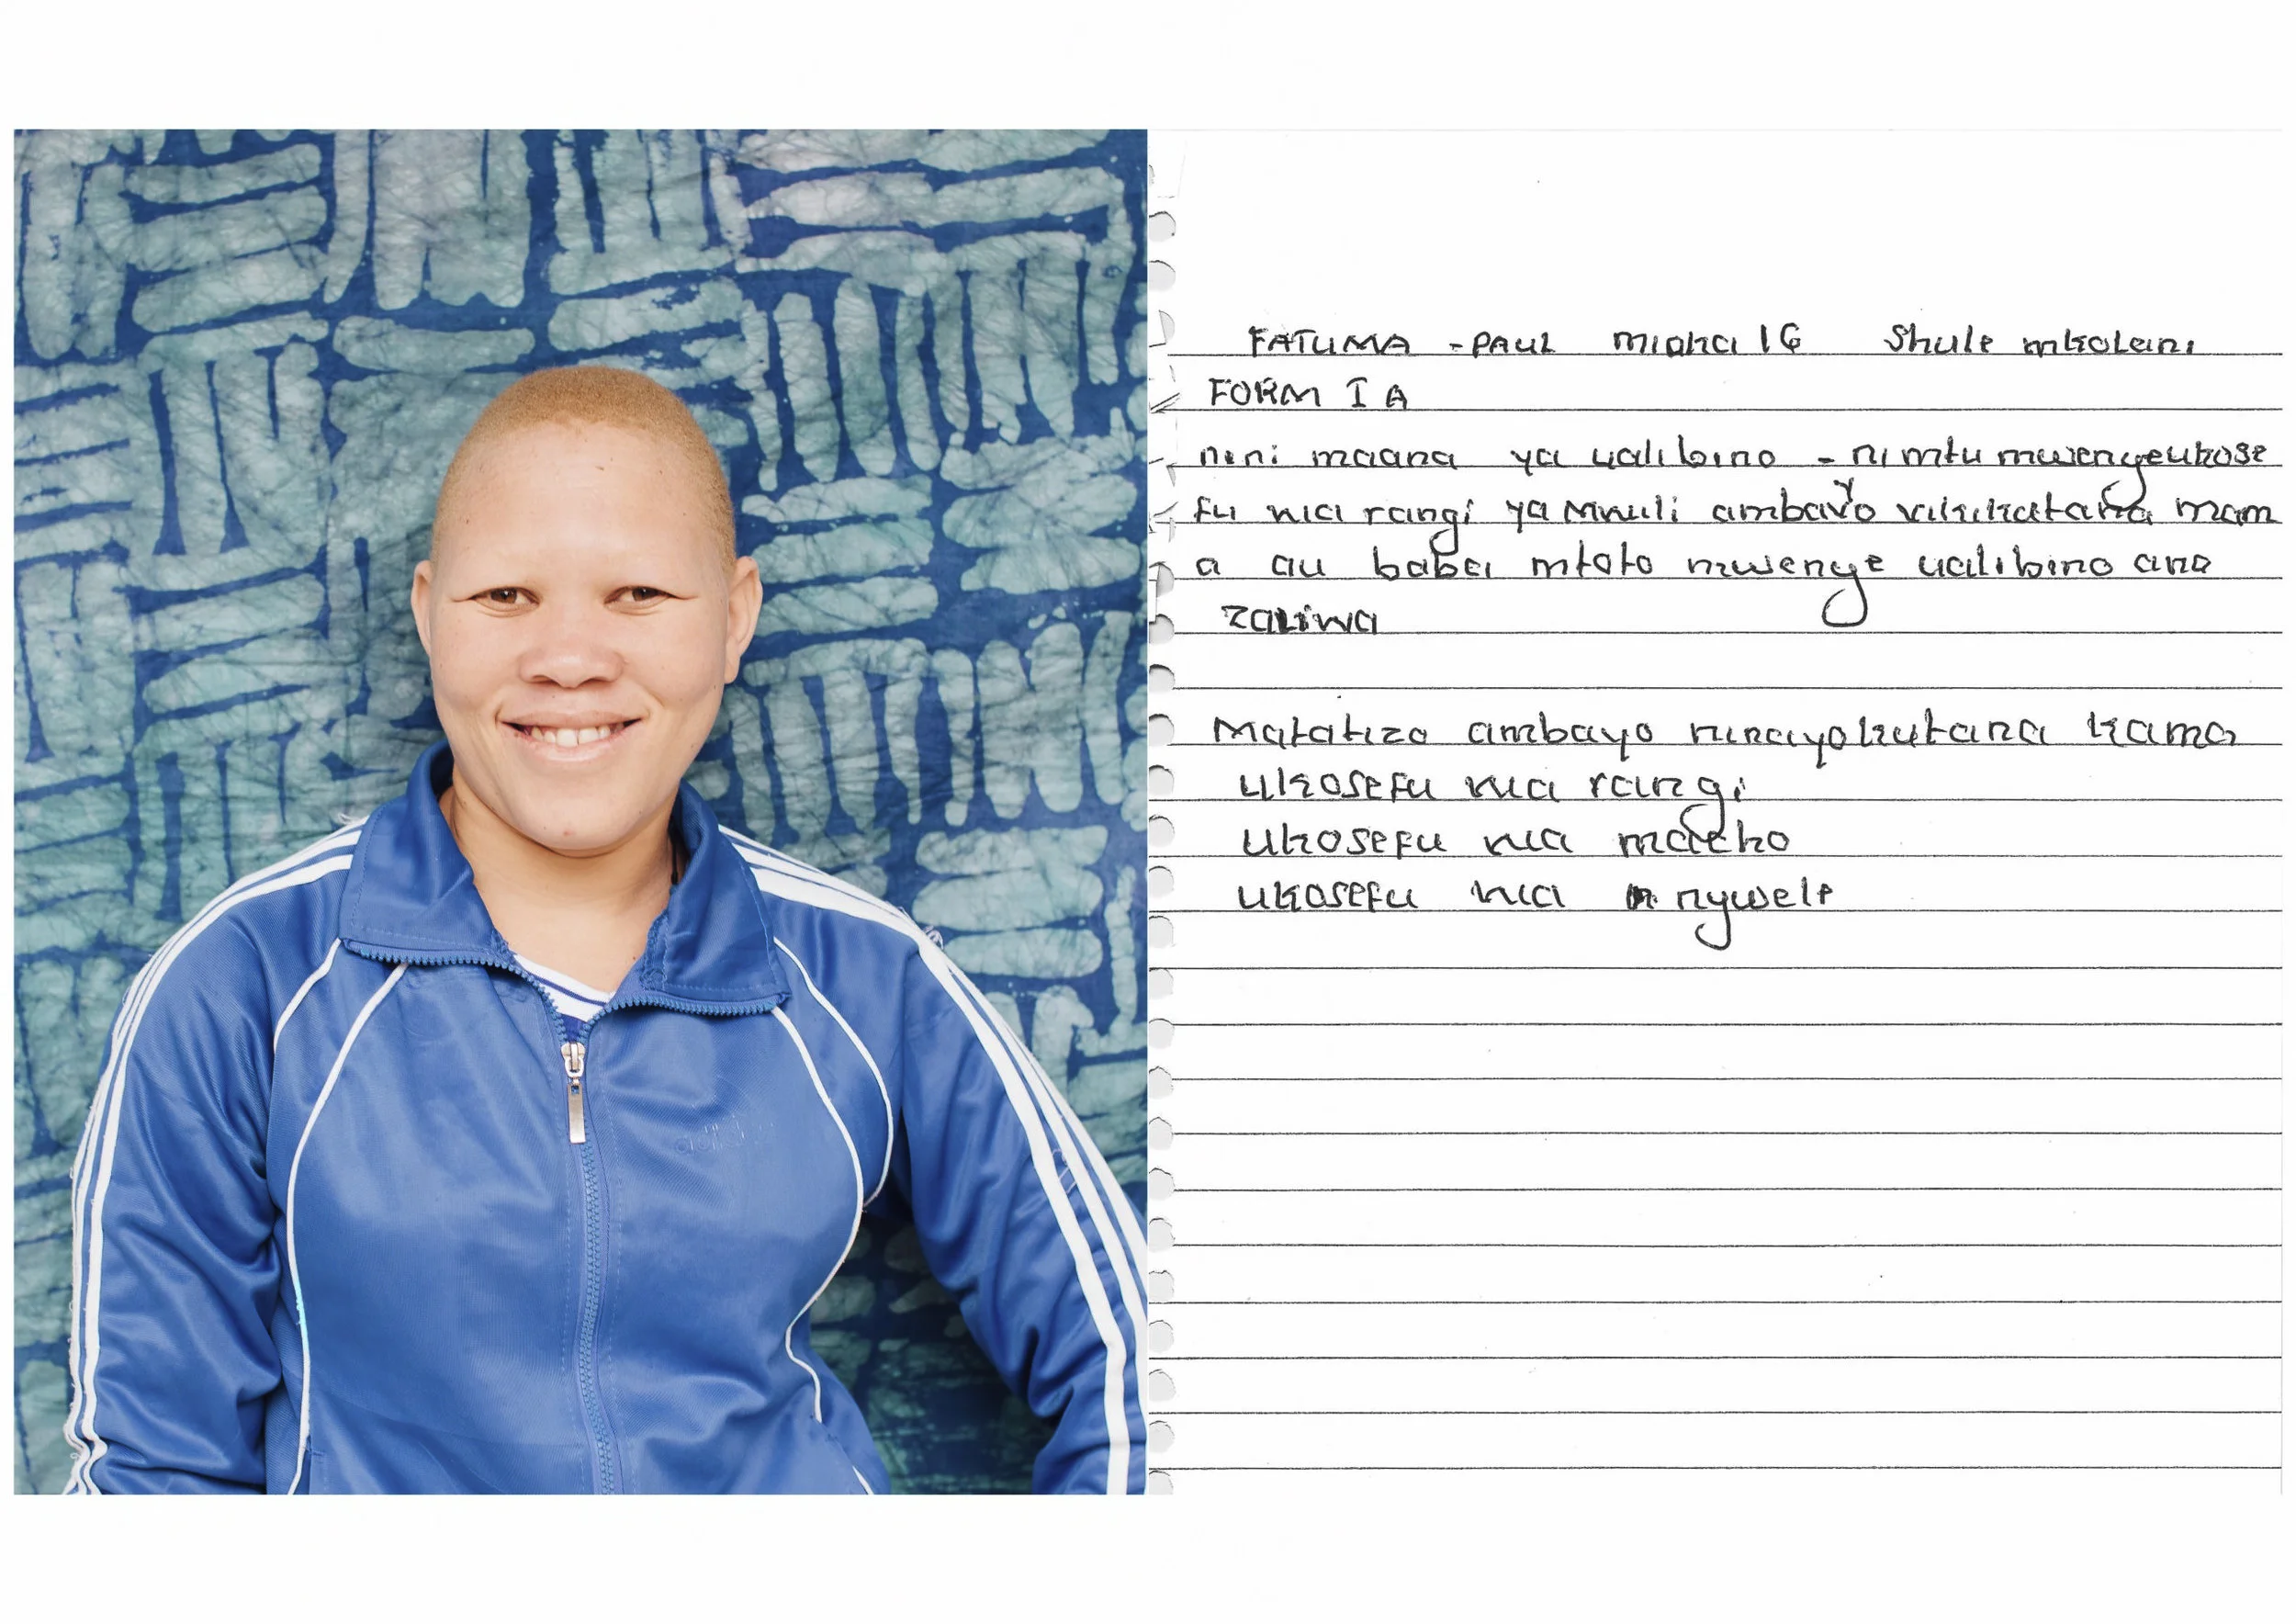 adidas
FATUMA - PAUL miaka 16 Shule mkolani
FORM I A
nini maana ya ualibino - ni mtu mwenye ukose
fu wa rangi ya Mwili ambayo vikikutana mam
a au baba mtoto mwenye ualibino ana
zaliwa
Matatizo ambayo ninayokutana kama
ukosefu wa rangi
ukosefu wa macho
ukosefu wa nywele